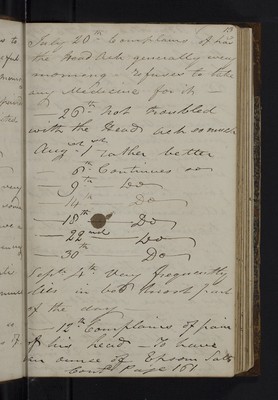 July 20th Complains of has
the Head Ach generally every
morning - refuses to take
any Medicine for it -
— 26th Not troubled
with the Head ach so much
Augst 1st rather better
— 6th Continues so
— 9th Do
— 14th Do
— 18th Do
— 22nd Do
— 30th Do
Septr 4th Very frequently
lies in bed most part
of the day
— 12th Complains of pain
of his head - To have
an ounce of Epsom Salts
Contd Page 161